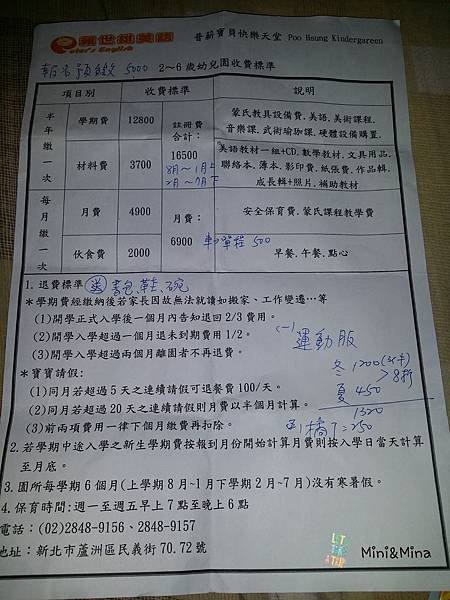 賴世雄美語
Peter's English
普薪寶貝快樂天堂 Poo Hsung Kindergareen
報名預繳 5000
2～6 歲幼兒園收費標準
項目別 收費標準 說明
半年繳一次
學期費 12800
註冊費合計：
16500
8月～1月上
2月～7月下
蒙氏教具設備費.美語.美術課程.
音樂課.武術瑜珈課.硬體設備購置.
材料費 3700
美語教材一組+CD.數學教材.文具用品.
聯絡本.簿本.影印費.紙張費.作品輯.
成長輯+照片.補助教材
每月繳一次
月費 4900
月費：
6900
安全保育費.蒙氏課程教學費
車單程 500
伙食費 2000
早餐.午餐.點心
1.退費標準 送 書包、鞋、碗
*學期費經繳納後若家長因故無法就讀如搬家、工作變遷…等
(1)開學正式入學後一個月內告知退回 2/3 費用。
(2)開學入學超過一個月退未到期費用 1/2。
(3)開學入學超過兩個月離園者不再退費。
(一) 運動服
冬 1200
夏 450
>8折
1320
*寶寶請假:
(1)同月若超過 5 天之連續請假可退餐費 100/天。
(2)同月若超過 20 天之連續請假則月費以半個月計算。
(3)前兩項費用一律下個月繳費再扣除。
=250
2.若學期中途入學之新生學期費按報到月份開始計算月費則按入學日當天計算
至月底。
3.園所每學期 6 個月(上學期 8 月~1 月下學期 2 月~7 月)沒有寒暑假。
4.保育時間:週一至週五早上 7 點至晚上 6 點
電話：(02)2848-9156、2848-9157
地址：新北市蘆洲區民義街 70.72 號
Mini&Mina